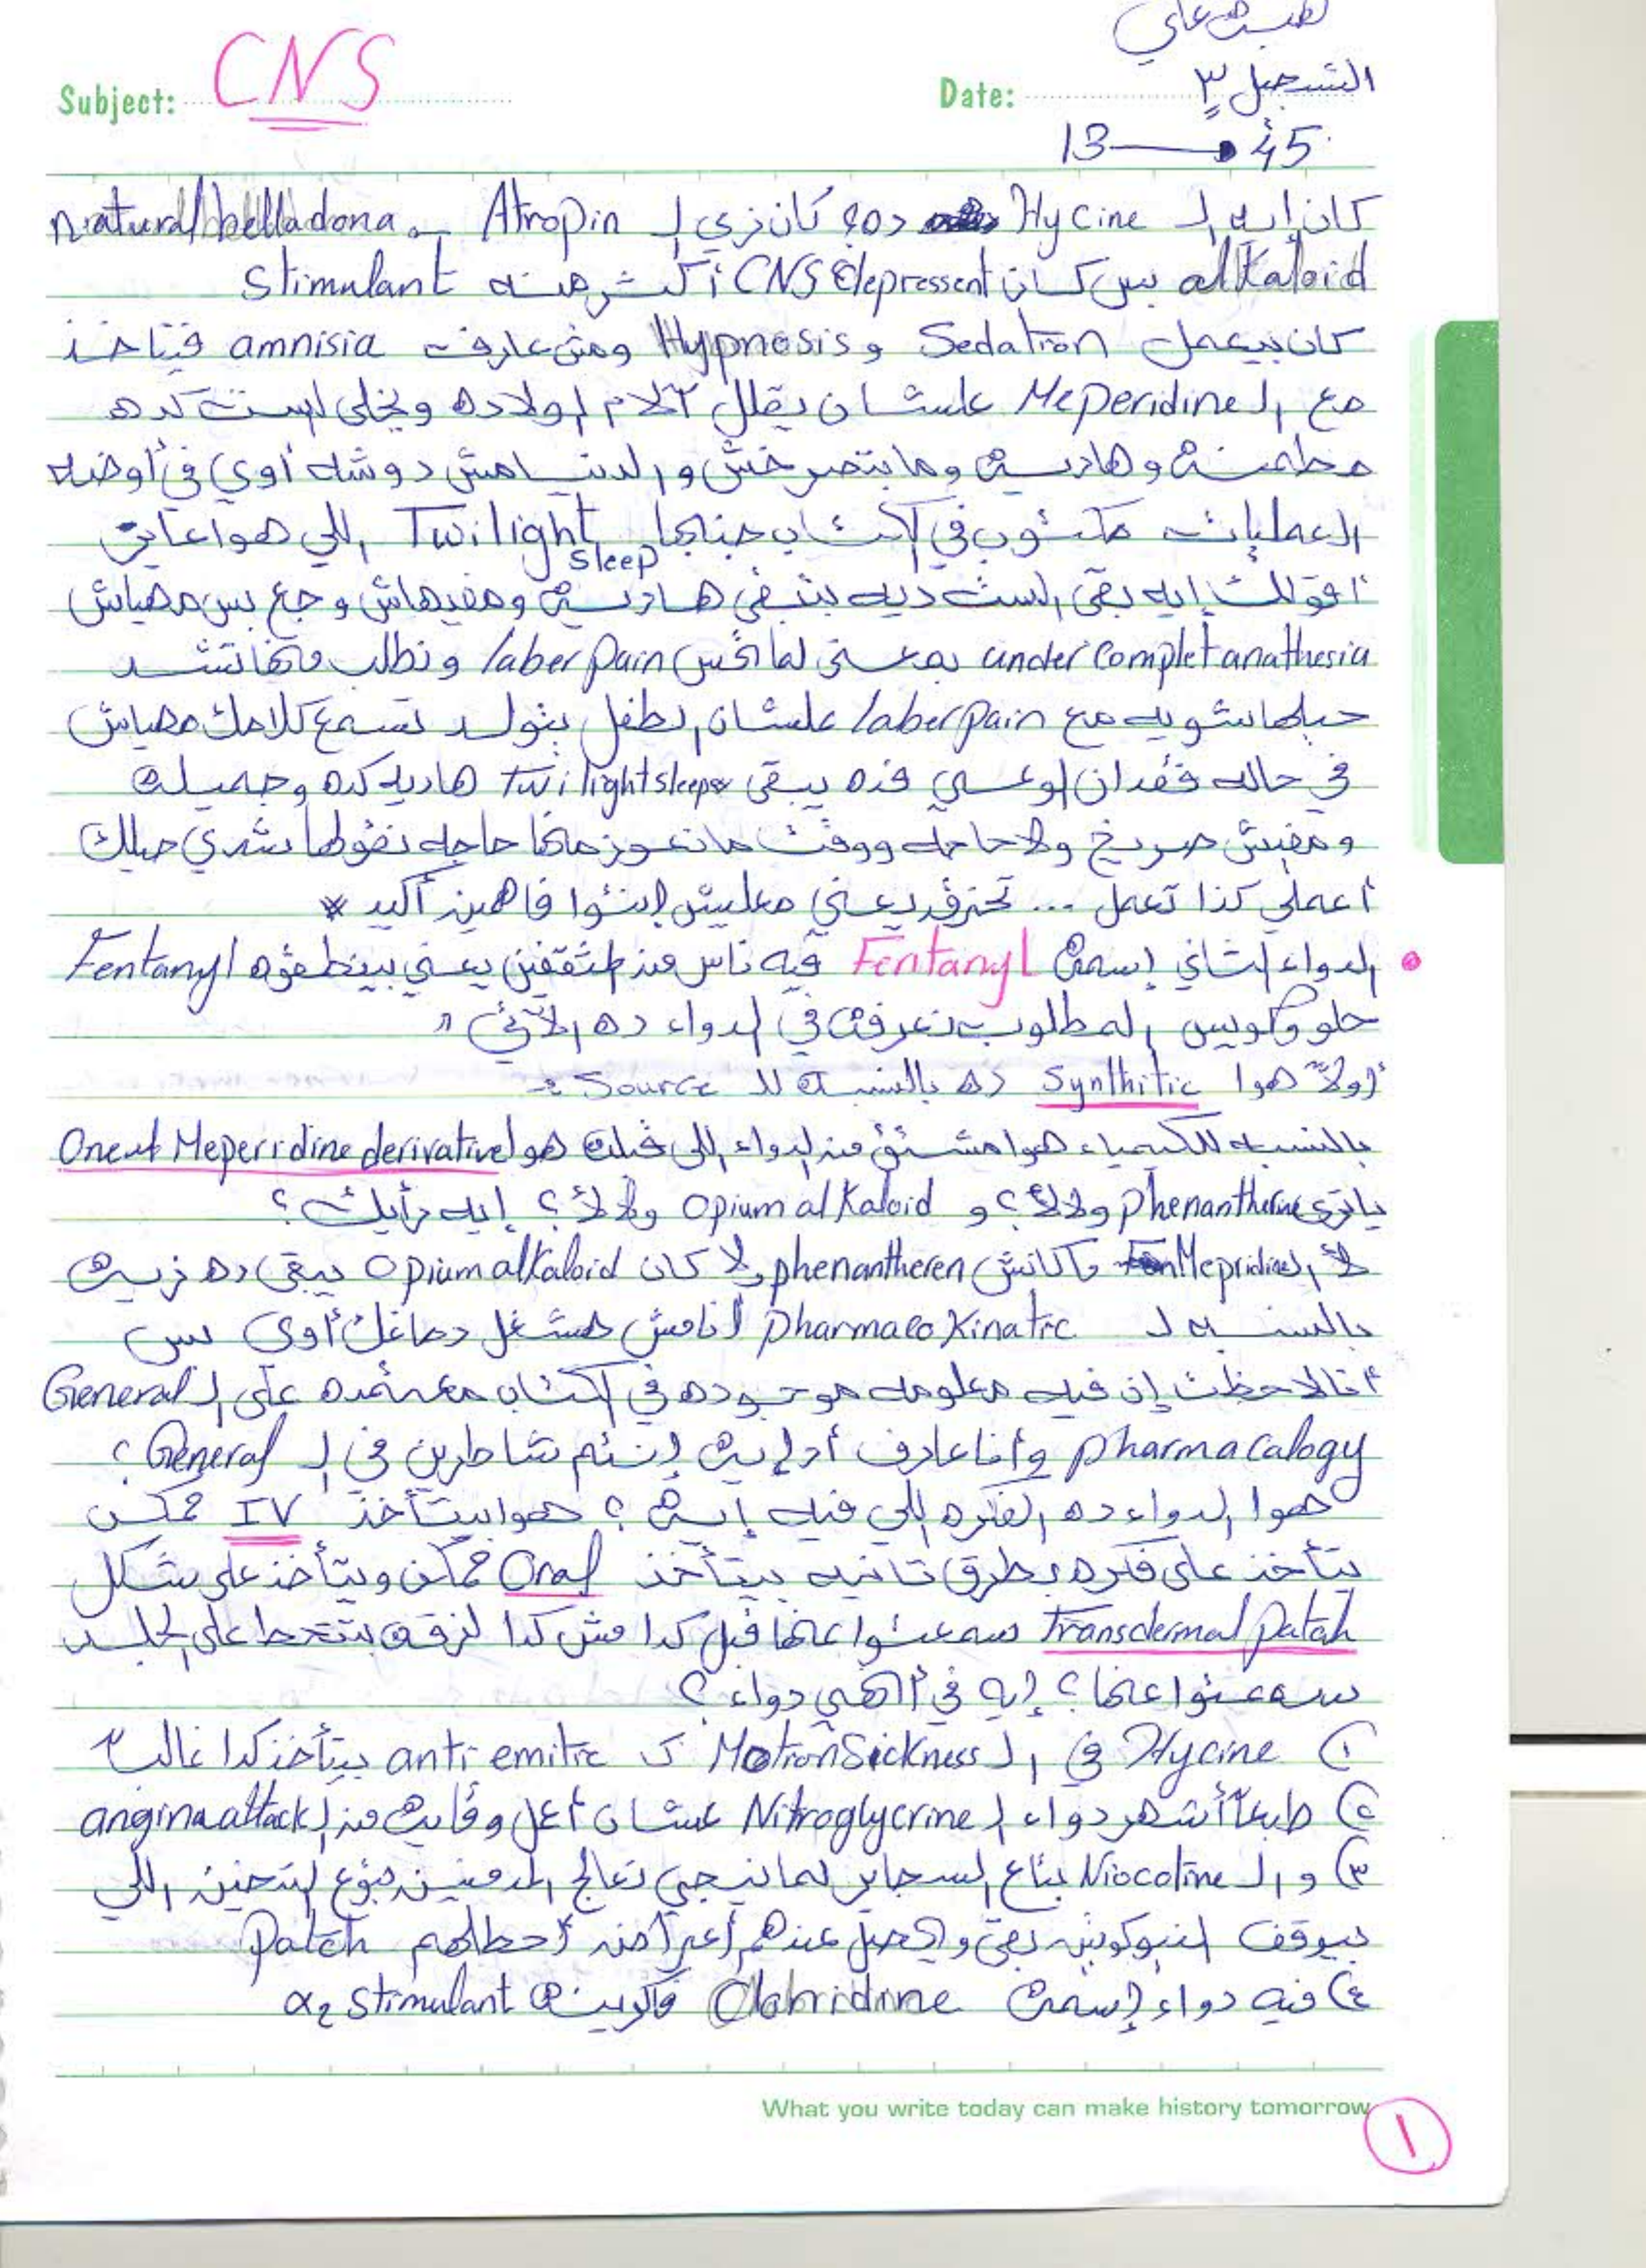 لطيفة علي
Subject: CNS
Date: التسجيل ٣
13 → 45
كان إيه الـ Hycine ده؟ كان زي الـ Atropin ـ natural belladona
alkaloid بس كان CNS depressent أكتر منه Stimulant
كان بيعمل Sedation و Hypnosis ومش عارف amnisia فيتاخذ
مع الـ Meperidine علشان يقلل آلام الولاده ويخلي الست كده
مطمنة وهادية وما بتصرخش والدنيا مش دوشه أوي في أوضه
العمليات مكتوب في الكتاب جنابها Twilight sleep اللي هوا عايز
أقولك إيه بقى الست ديه بتبقى هادية ومفيهاش وجع بس مهياش
under complet anathesia بمعنى لما تحس laber pain ونطلب منها تشد
حيلها شويه مع laber pain علشان الطفل يتولد تسمع كلامك مهياش
في حاله فقدان الوعي فده يبقى twilight sleep هاديه كده وجميلة
ومفيش صريخ ولا حاجه ووقت ما نعوز منها حاجه نقولها شدي حيلك
أعملي كذا تعمل ... تحزق يعني معليش إنتوا فاهمين أكيد *
• الدواء الثاني إسمه Fentanyl فيه ناس من المثقفين يعني بينطقوه Fentanyl
حلو وكويس المطلوب نعرفه في الدواء ده الآتي "
أولاً هوا Synthitic ده بالنسبة للـ Source
بالنسبه للكيمياء هوا مشتق من الدواء اللي قبله هو Meperridine derivative
يا ترى phenantherine ولا لأ؟ و opium alkaloid ولا لأ؟ إيه رأيك؟
لأ الـ Mepridine ماكانش phenantheren ولا كان opium alkaloid يبقى ده زيه
بالنسبه لـ pharmaco Kinatic أنا مش هشغل دماغك أوي بس
أنا لاحظت إن فيه معلومه موجوده في الكتاب معتمده على الـ General
pharmacalogy وأنا عارف أد إيه إنتم شاطرين في الـ General؟
هوا الدواء ده الفكره اللي فيه إيه؟ هوا بيتأخذ IV ممكن
يتأخذ على فكره بطرق تانيه بيتأخذ Oral ممكن ويتأخذ على شكل
Transdermal patch سمعتوا عنها قبل كدا مش كدا لزقة بتتحط على الجلد
سمعتوا عنها؟ إيه في أنهي دواء؟
١) Hycine في الـ Motion Sickness كـ anti emitic بيتأخذ كدا غالباً
٢) طبعاً أشهر دواء الـ Nitroglycrine علشان أعمل وقاية من الـ angina attack
٣) و الـ Niocotine بتاع السجاير لما نيجي نعالج المدمنين بتوع التدخين اللي
بيوقف النيكوتين بقى ويحصل عندهم أعراض أحطلهم Patch
٤) فيه دواء إسمه Clonidine فاكرينه α2 stimulant
What you write today can make history tomorrow
١